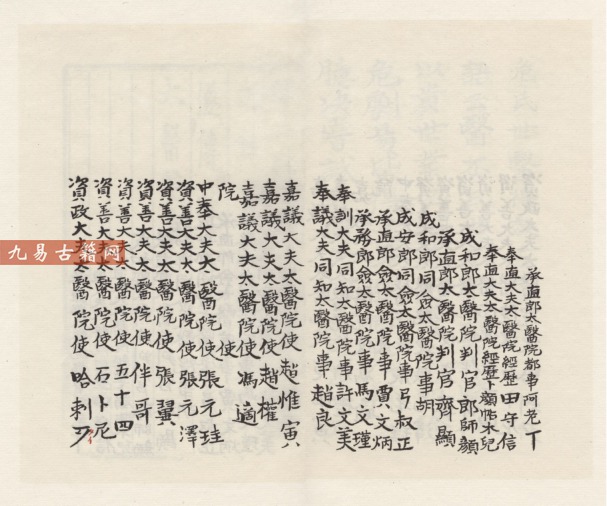 承直郎太醫院都事阿老丁
奉直大夫太醫院經歷田守信
奉直大夫太醫院經歷卜顏帖木兒
成和郎太醫院判官郎師顏
承直郎太醫院判官齊顯
成和郎同僉太醫院事胡
成安郎同僉太醫院事弓叔正
承直郎僉太醫院事賈文炳
承務郎僉太醫院事馬文瑾
奉訓大夫同知太醫院事許文美
奉議大夫同知太醫院事趙良
嘉議大夫太醫院使趙惟寅
嘉議大夫太醫院使趙權
嘉議大夫太醫院使馮適
院 使
中奉大夫太醫院使張元珪
資善大夫太醫院使張元澤
資善大夫太醫院使張翼
資善大夫太醫院使伴哥
資善大夫太醫院使五十四
資善大夫太醫院使石卜尼
資政大夫太醫院使哈剌
九易古籍网